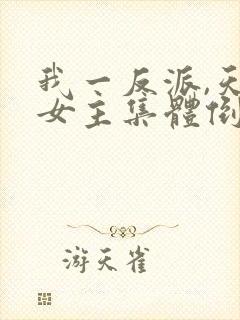 我一反派,天
女主集體倒
游天雀